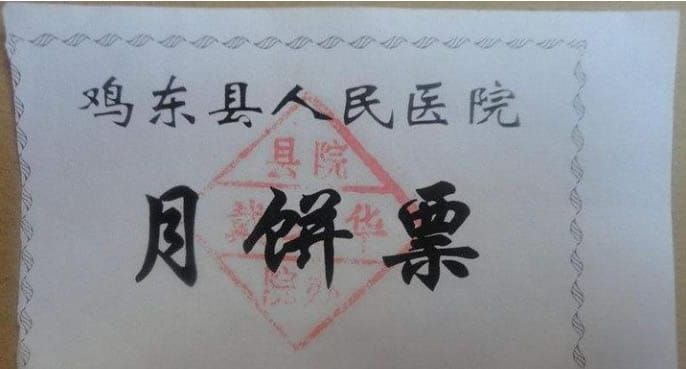 鸡东县人民医院
县院
华
月饼票
院办